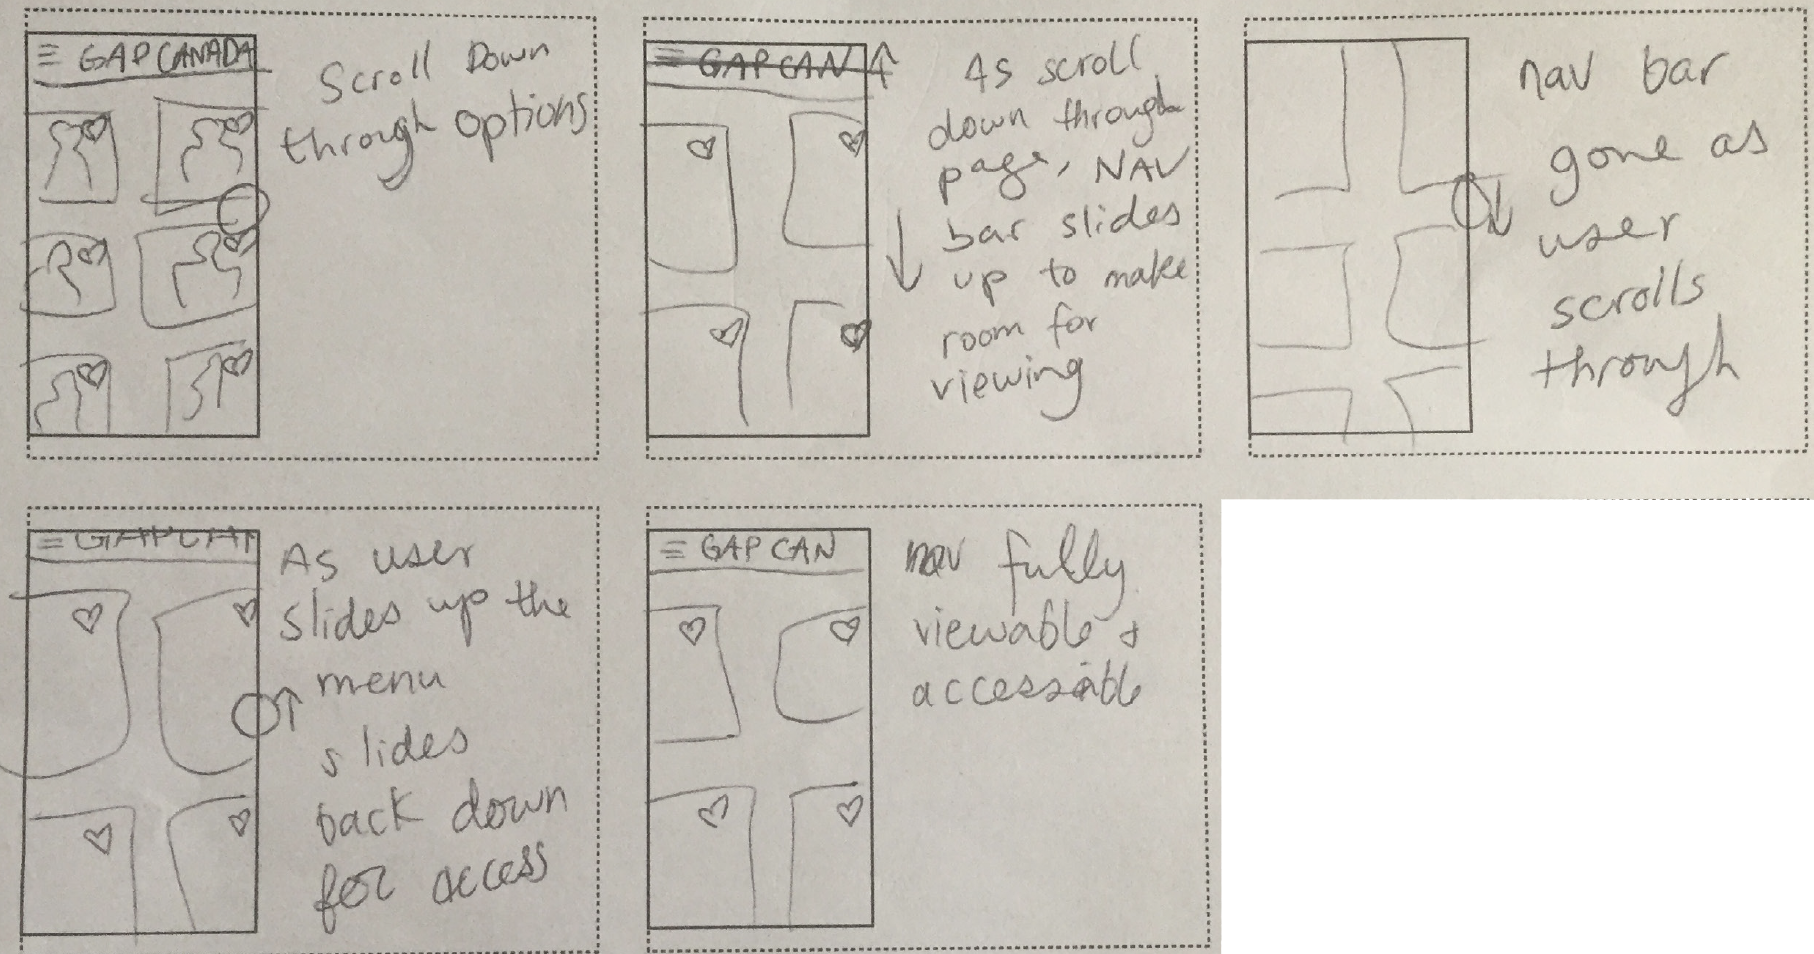 GAP CANADA
Scroll Down
through options
GAP CAN
As scroll
down through
page, NAV
bar slides
up to make
room for
viewing
nav bar
gone as
user
scrolls
through
GAP CAN
As user
slides up the
menu
slides
back down
for access
GAP CAN
nav fully
viewable &
accessible